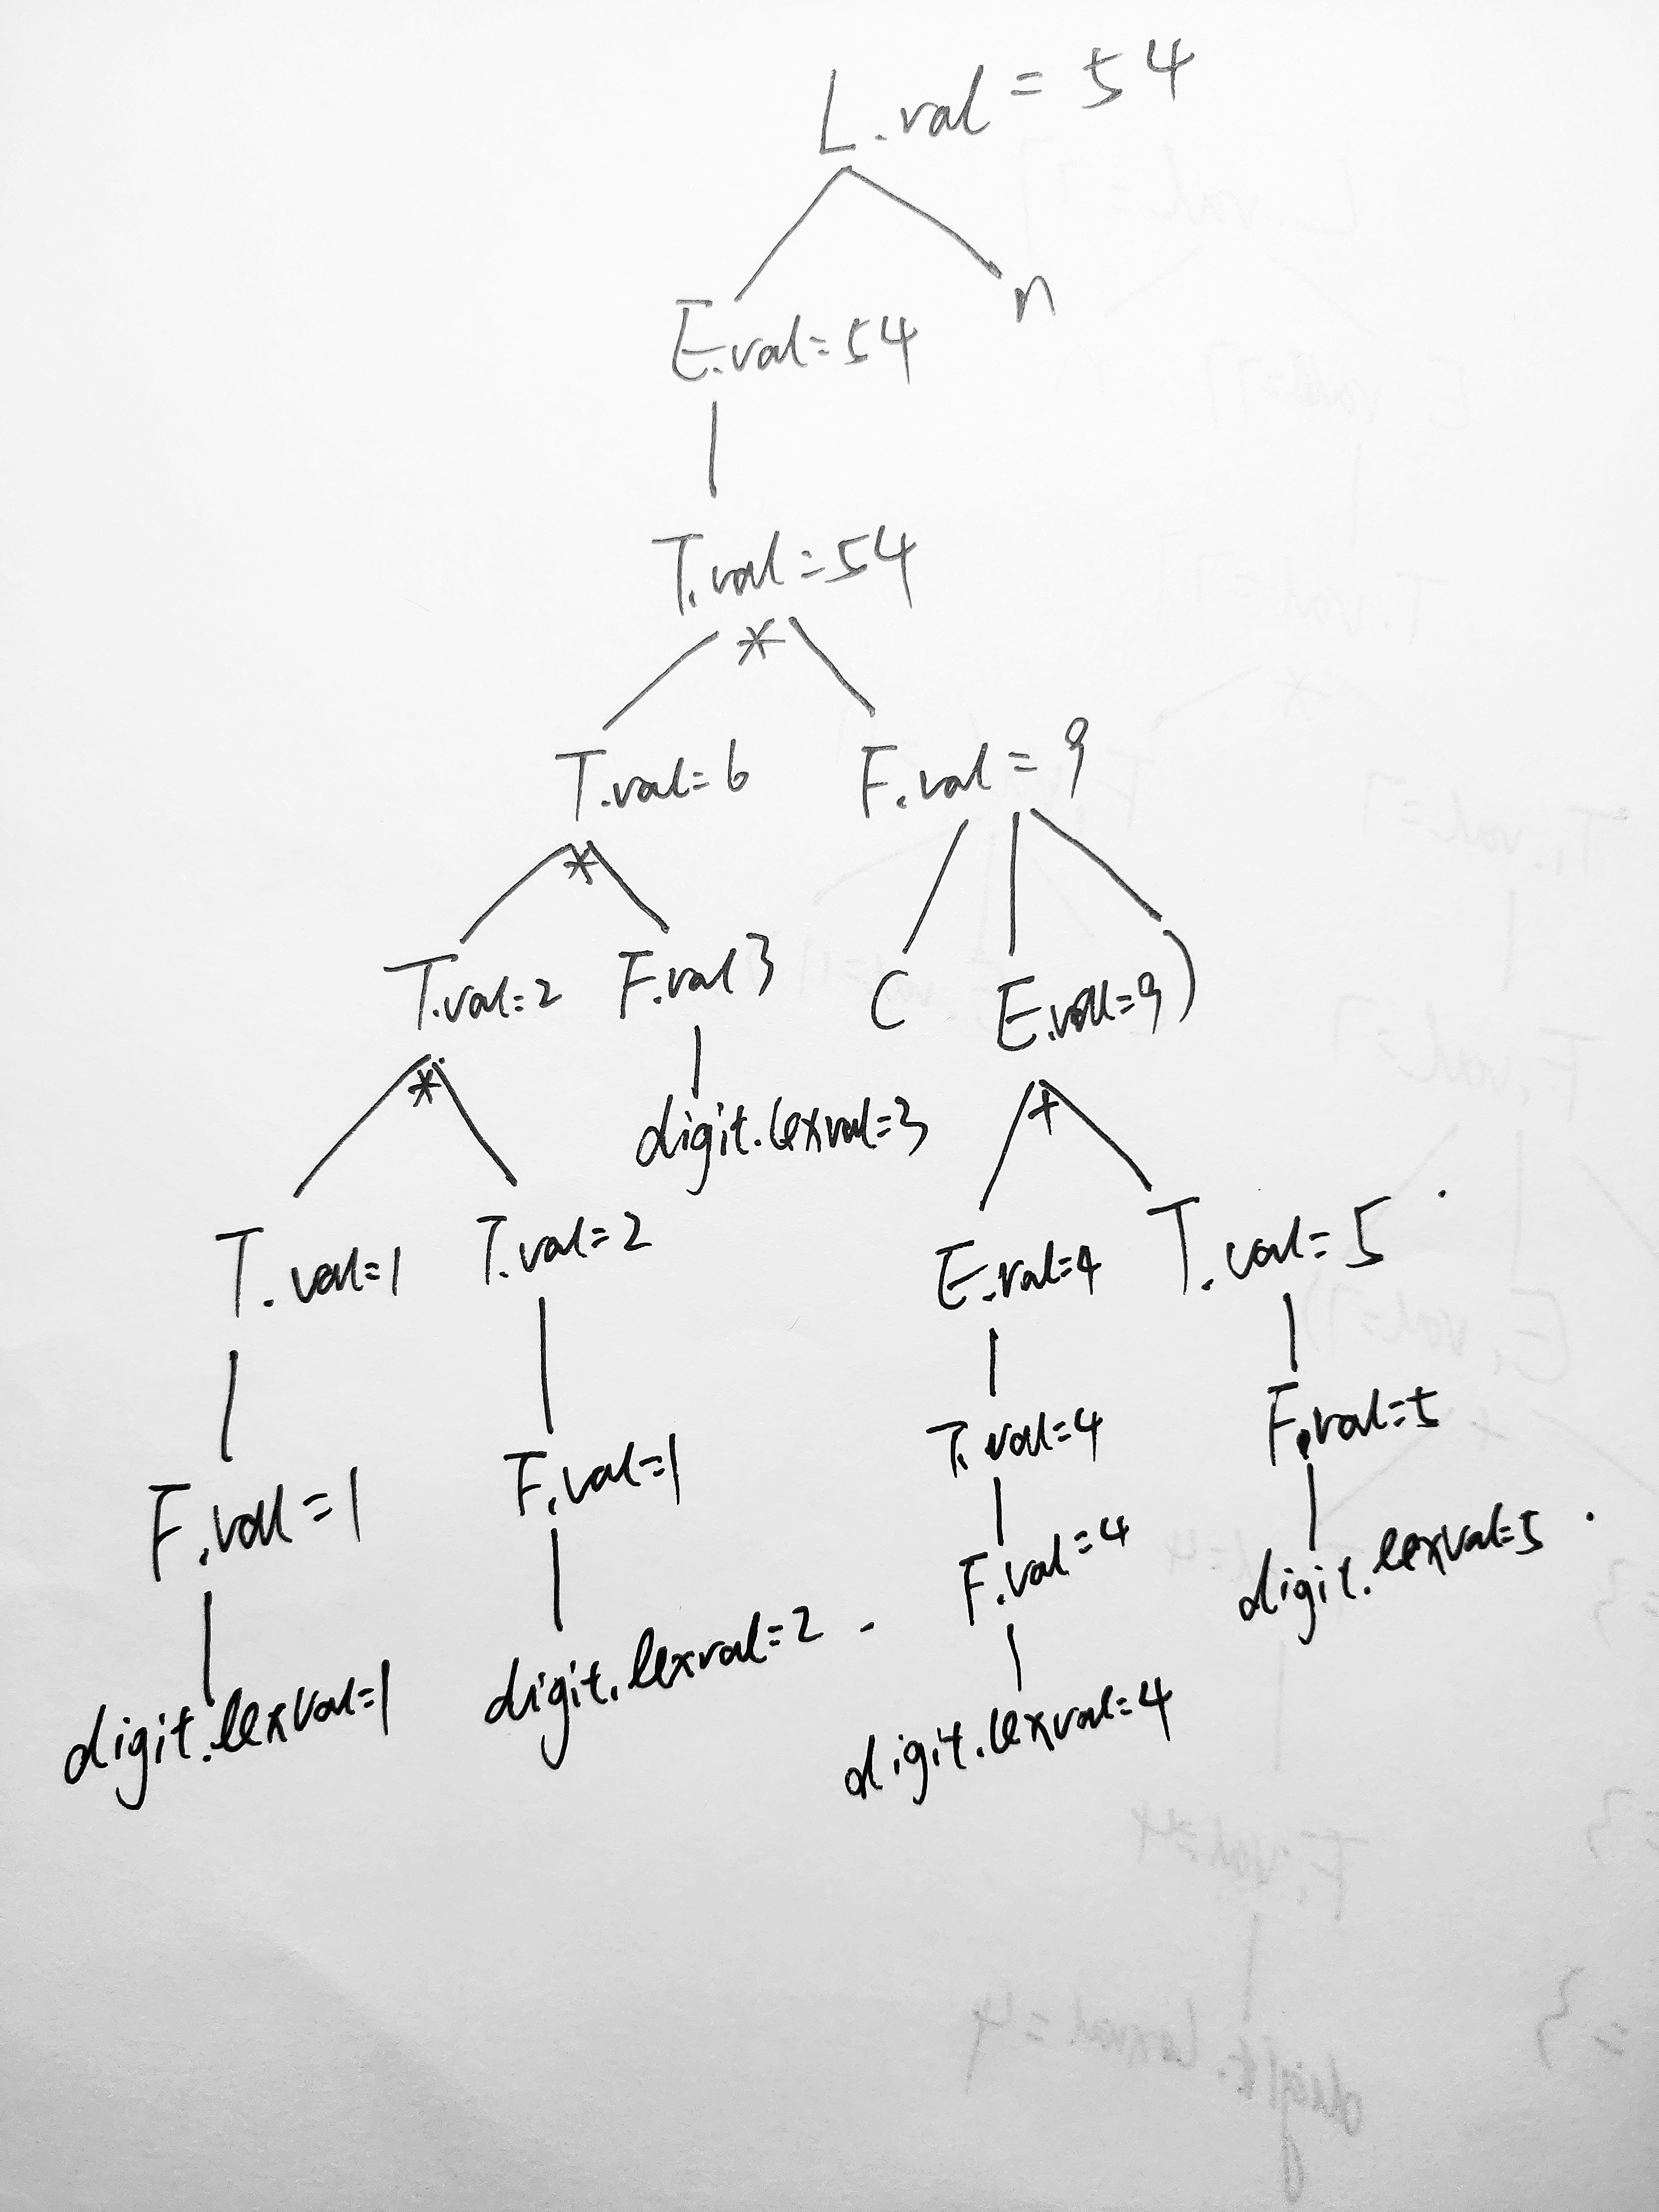 L.val = 54
E.val=54 n
T.val=54
*
T.val=6 F.val=9
*
T.val=2 F.val 3 ( E.val=9 )
* digit.lexval=3 +
T.val=1 T.val=2 E.val=4 T.val=5
F.val=1 F.val=1 T.val=4 F.val=5
F.val=4 digit.lexval=5
digit.lexval=1 digit.lexval=2 digit.lexval=4